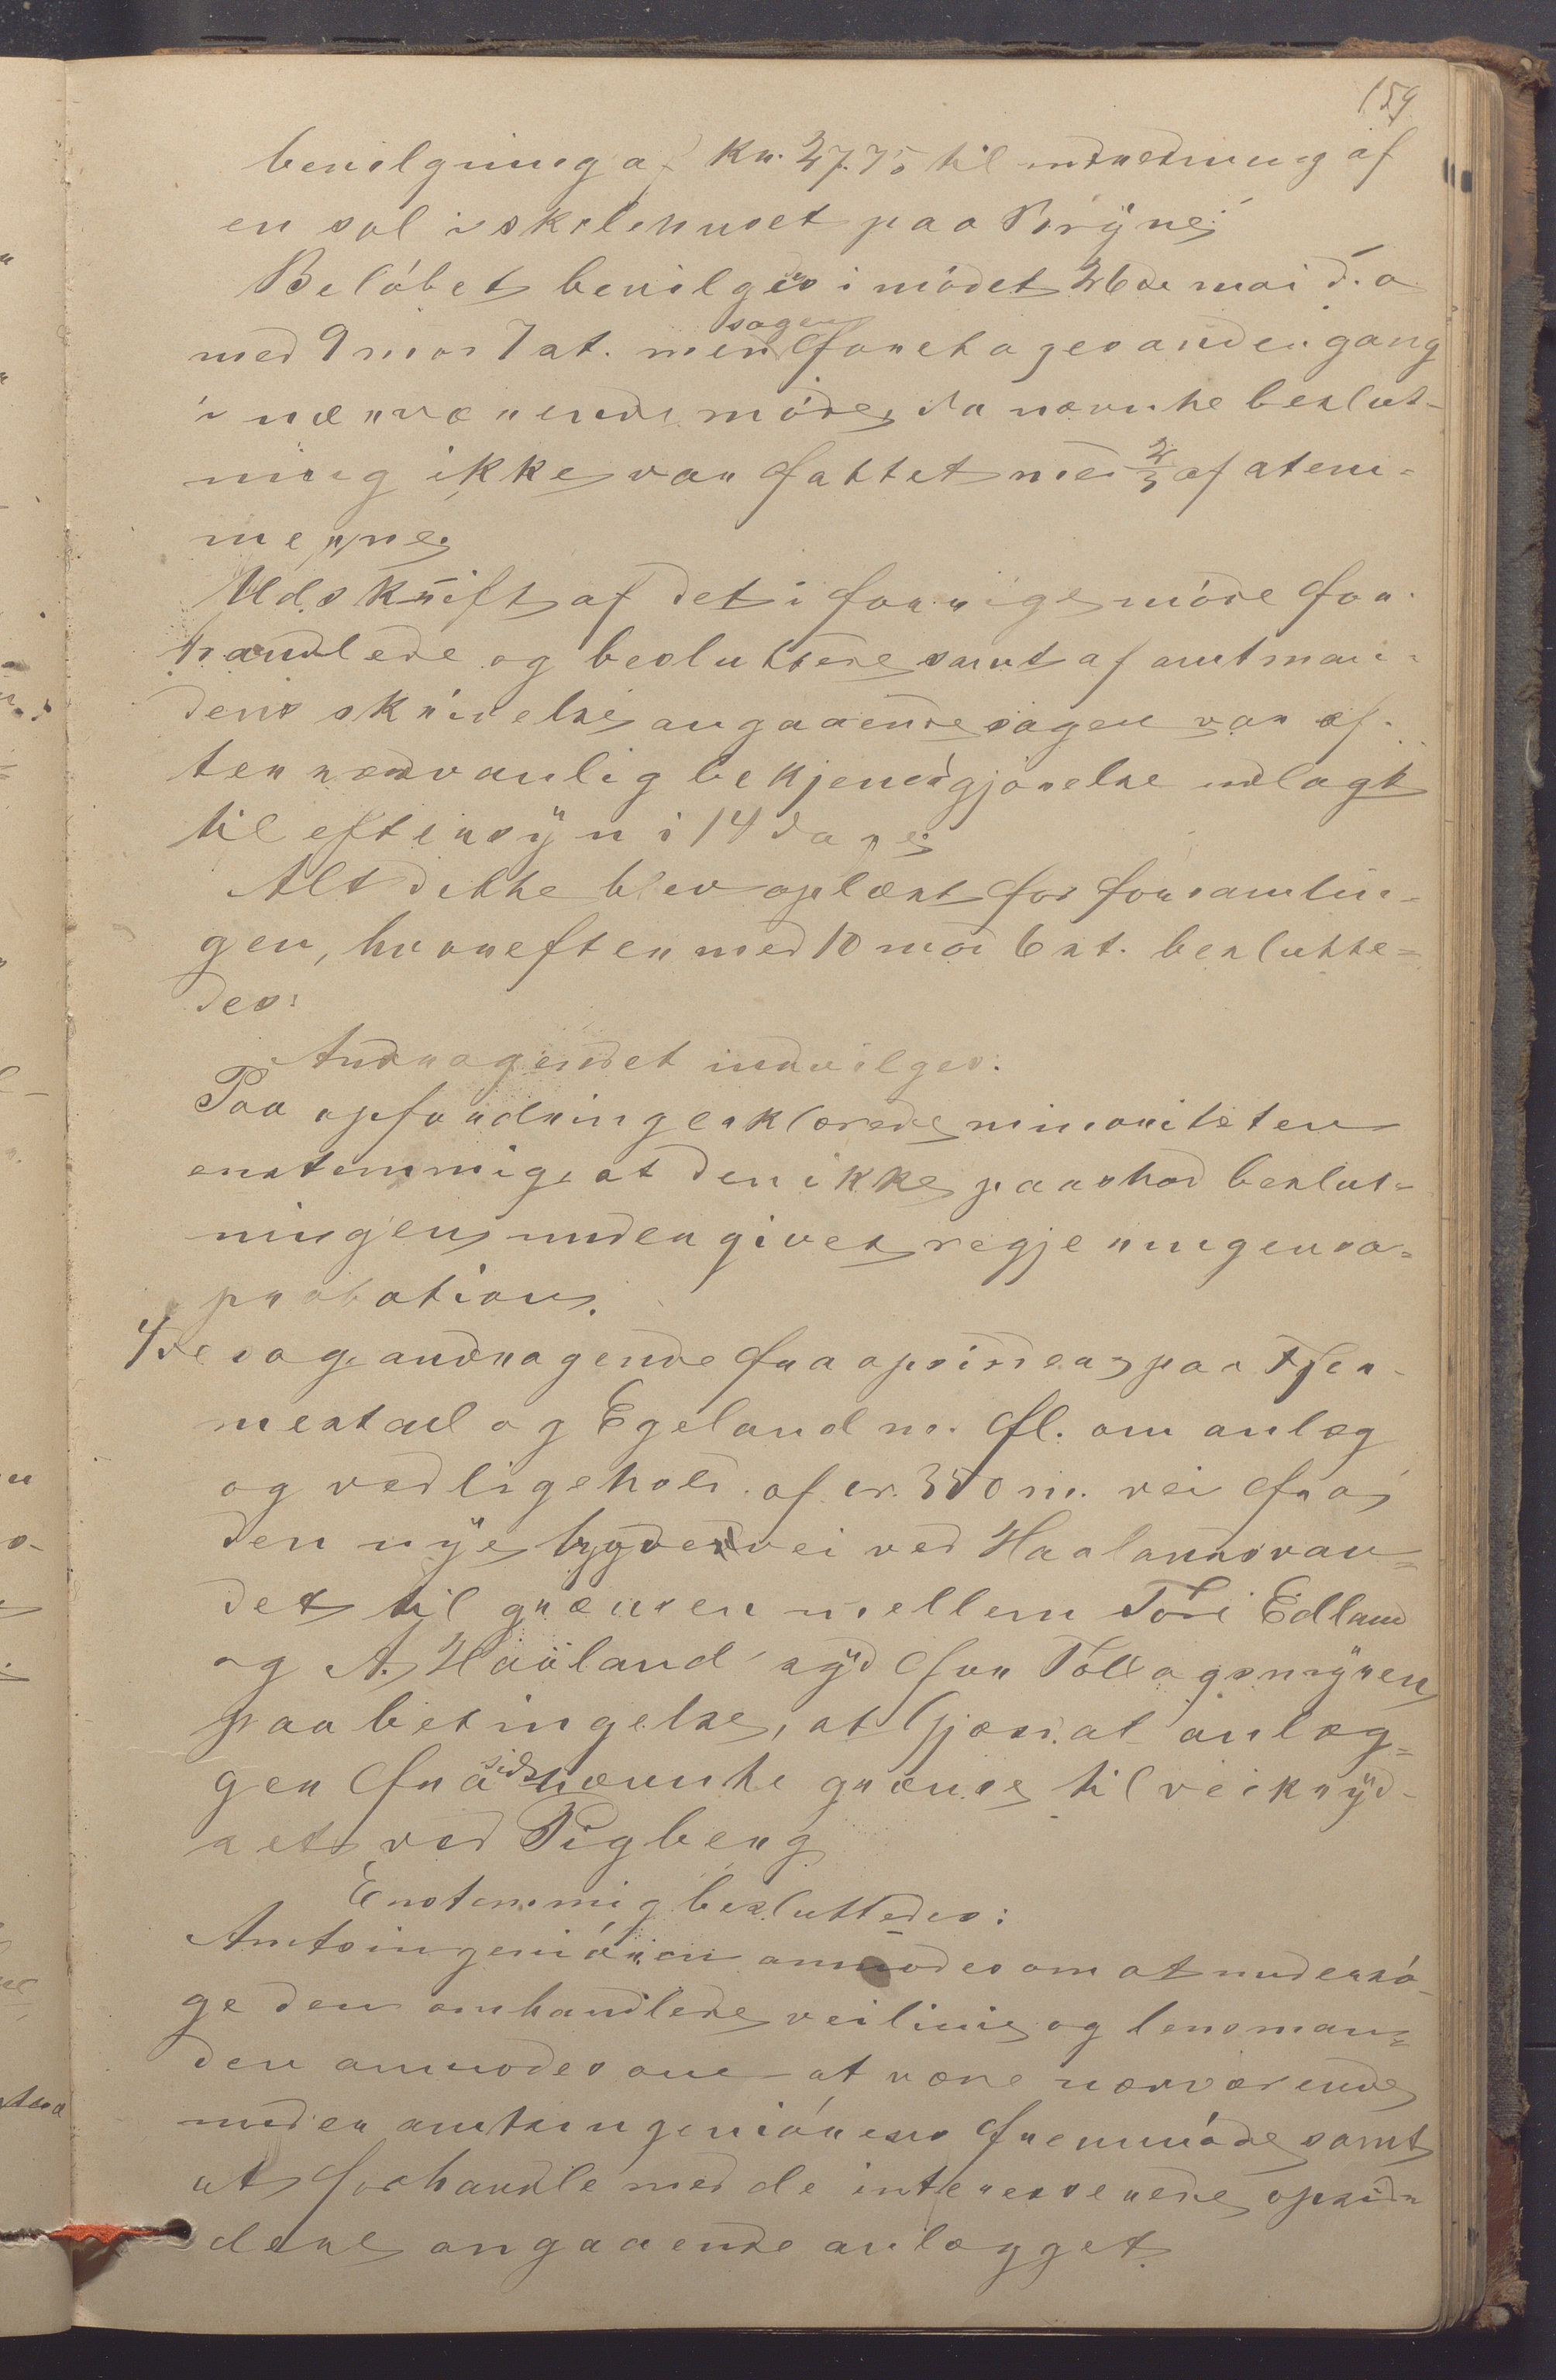 159
bevilgning af kr. 27.75 til indredning af
en sal i skolehuset paa Bryne.
Beløbet bevilgedes i mødet 26de mai d. a
med 9 mod 7 st. men sagen foretages anden gang
i nærværende møde, da nævnte beslut-
ning ikke var fattet med 2/3 af stem-
merne.
Udskrift af det i forrige møde for-
handlede og besluttede samt af amtman-
dens skrivelse angaaende sagen var ef-
ter sedvanlig bekjendtgjørelse udlagt
til eftersyn i 14 dage.
Alt dette blev oplæst for forsamlin-
gen, hvorefter med 10 mod 6 st. beslutte-
des:
Andragendet indvilges.
Paa opfordring erklærede minoriteten
enstemmig, at den ikke paastod beslut-
ningen undergivet regjeringens a-
probation.
4de sag, andragende fra opsiddere paa Tjen-
mestad og Egeland m. fl. om anlæg
og vedligehold af ca. 350 m. vei fra
den nye bygdevei ved Haalandsvan-
det til grænsen mellem Tore Edland
og A. Haaland syd for Tollagsmyren
paa betingelse, at Gjæsdal anlæg-
ger fra sidstnævnte grænse til veikryd-
set ved Tigberg
Enstemmig besluttedes:
Amtsingeniøren anmodes om at undersø-
ge den omhandlede veilinie og lensman-
den anmodes om at være nærværende
under amtsingeniørens fremmøde samt
at forhandle med de interesserede opsid-
dere angaaende anlægget.